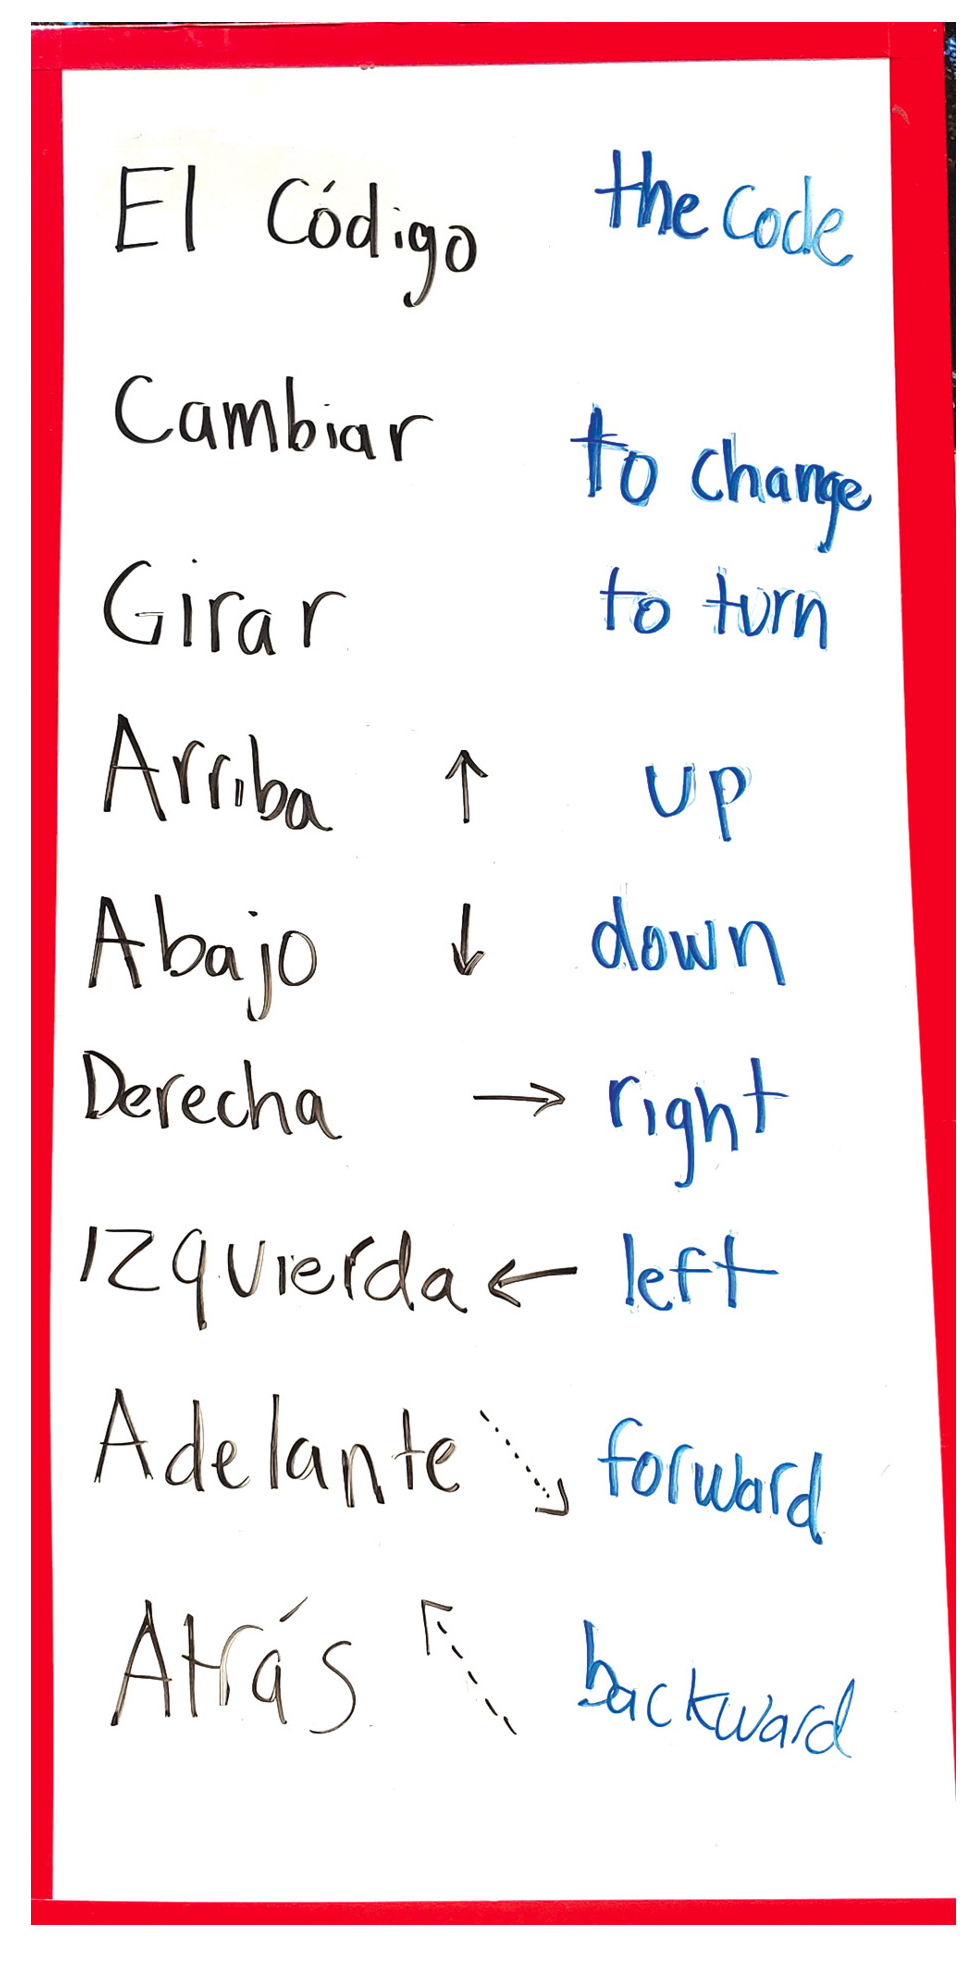 El Código the code
Cambiar to change
Girar to turn
Arriba ↑ up
Abajo ↓ down
Derecha → right
Izquierda ← left
Adelante ↘ forward
Atrás ↖ backward